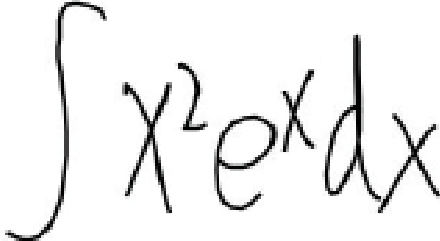 ∫x²eˣdx